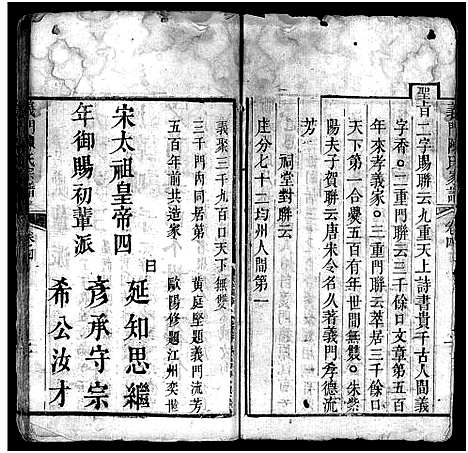 聖旨二字賜聯云九重天上詩書貴千古人間義
字香。二重門聯云三千餘口文章第五百
年來孝義家。三重門聯云萃居三千餘口
天下第一合爨五百有年世間無雙。朱紫
陽夫子賀聯云唐宋令名久著義門孝德流
芳
祠堂對聯云
庄分七十二均州人間第一
義聚三千九百口天下無雙
三千門內同居第 黄庭堅題義門流芳
五百年前共造家 歐陽修題江州奕世
宋太祖皇帝四
年御賜初輩派
曰
延知思繼
彦承守宗
希公汝才
義門陳氏家譜 卷四
義門陳氏家譜 卷四